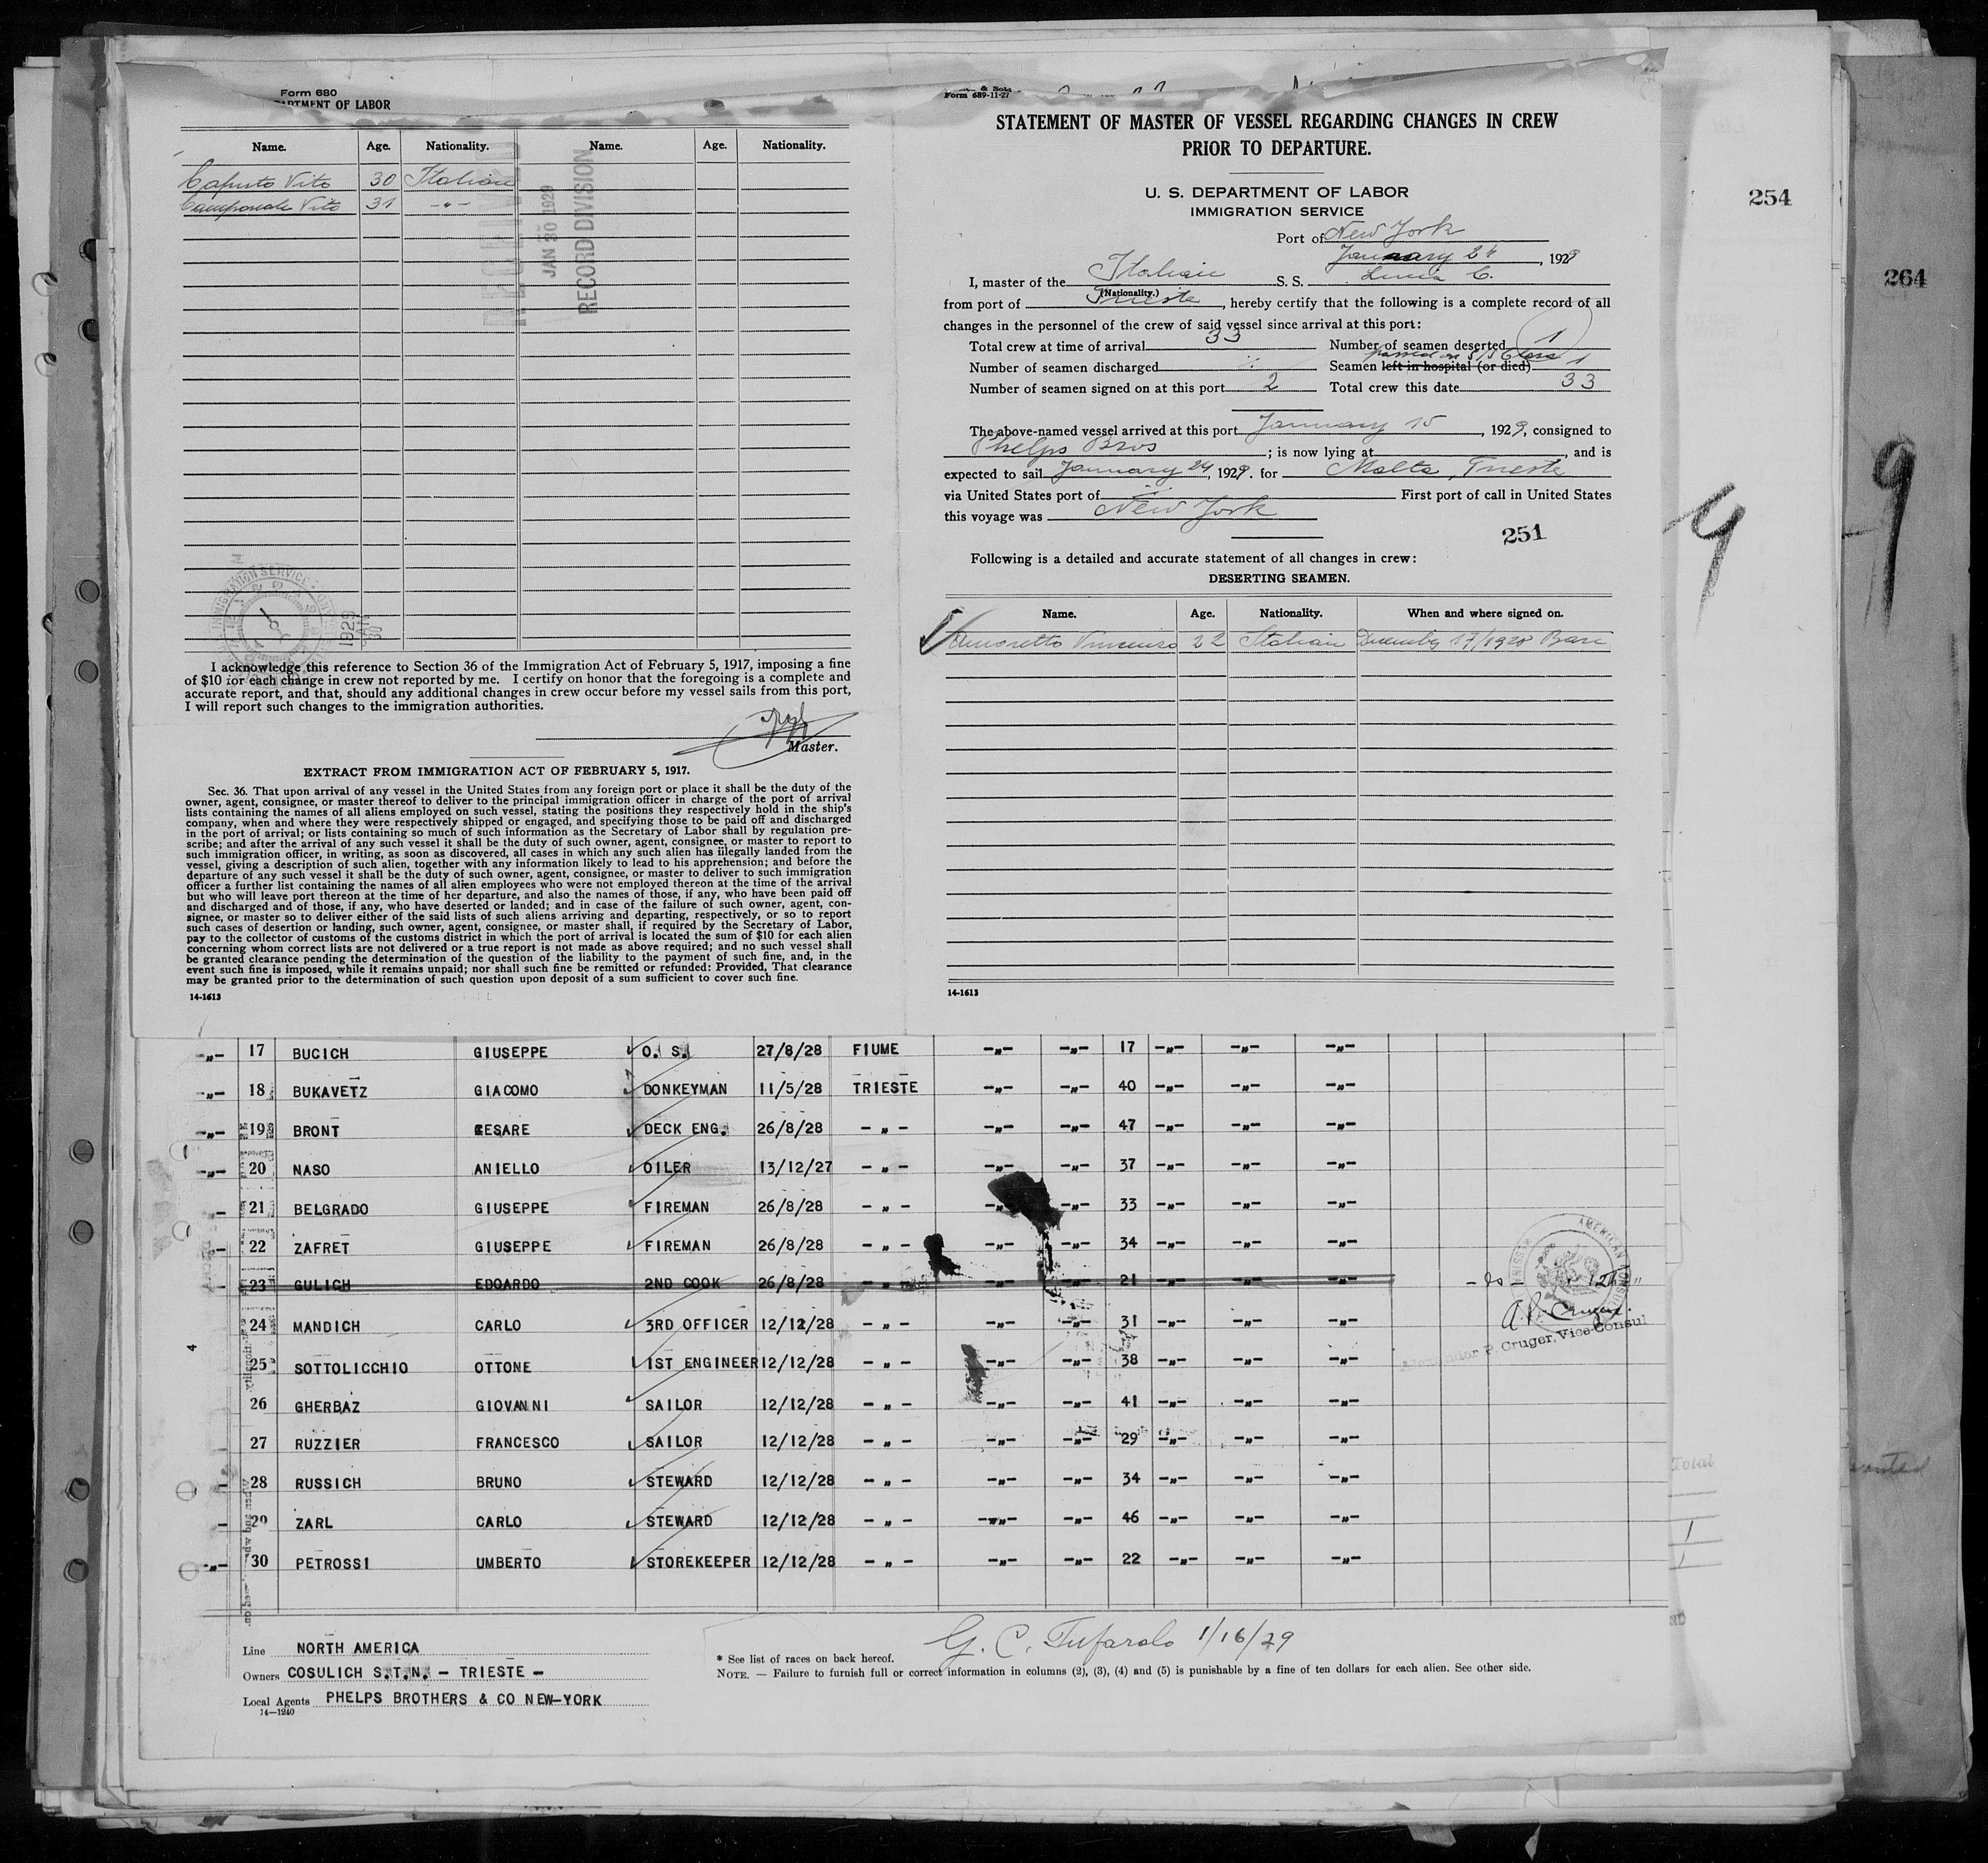 Form 680
DEPARTMENT OF LABOR
Name. Age. Nationality. Name. Age. Nationality.
Caputo Vito 30 Italian
Camporeale Vito 31 -"-
JAN 30 1929
RECORD DIVISION
I acknowledge this reference to Section 36 of the Immigration Act of February 5, 1917, imposing a fine
of $10 for each change in crew not reported by me. I certify on honor that the foregoing is a complete and
accurate report, and that, should any additional changes in crew occur before my vessel sails from this port,
I will report such changes to the immigration authorities.
Master.
EXTRACT FROM IMMIGRATION ACT OF FEBRUARY 5, 1917.
Sec. 36. That upon arrival of any vessel in the United States from any foreign port or place it shall be the duty of the
owner, agent, consignee, or master thereof to deliver to the principal immigration officer in charge of the port of arrival
lists containing the names of all aliens employed on such vessel, stating the positions they respectively hold in the ship's
company, when and where they were respectively shipped or engaged, and specifying those to be paid off and discharged
in the port of arrival; or lists containing so much of such information as the Secretary of Labor shall by regulation pre-
scribe; and after the arrival of any such vessel it shall be the duty of such owner, agent, consignee, or master to report to
such immigration officer, in writing, as soon as discovered, all cases in which any such alien has illegally landed from the
vessel, giving a description of such alien, together with any information likely to lead to his apprehension; and before the
departure of any such vessel it shall be the duty of such owner, agent, consignee, or master to deliver to such immigration
officer a further list containing the names of all alien employees who were not employed thereon at the time of the arrival
but who will leave port thereon at the time of her departure, and also the names of those, if any, who have been paid off
and discharged and of those, if any, who have deserted or landed; and in case of the failure of such owner, agent, con-
signee, or master so to deliver either of the said lists of such aliens arriving and departing, respectively, or so to report
such cases of desertion or landing, such owner, agent, consignee, or master shall, if required by the Secretary of Labor,
pay to the collector of customs of the customs district in which the port of arrival is located the sum of $10 for each alien
concerning whom correct lists are not delivered or a true report is not made as above required; and no such vessel shall
be granted clearance pending the determination of the question of the liability to the payment of such fine, and, in the
event such fine is imposed, while it remains unpaid; nor shall such fine be remitted or refunded: Provided, That clearance
may be granted prior to the determination of such question upon deposit of a sum sufficient to cover such fine.
14-1613
Form 689-11-27
STATEMENT OF MASTER OF VESSEL REGARDING CHANGES IN CREW
PRIOR TO DEPARTURE.
U. S. DEPARTMENT OF LABOR
IMMIGRATION SERVICE
Port of New York
January 24, 1929
I, master of the Italian S. S. Lucia C.
(Nationality.)
from port of Trieste, hereby certify that the following is a complete record of all
changes in the personnel of the crew of said vessel since arrival at this port:
Total crew at time of arrival 33 Number of seamen deserted 1
Number of seamen discharged Seamen left in hospital (or died) passed on S/S Clara 1
Number of seamen signed on at this port 2 Total crew this date 33
The above-named vessel arrived at this port January 15, 1929, consigned to
Phelps Bros; is now lying at , and is
expected to sail January 24, 1929. for Malta, Trieste
via United States port of First port of call in United States
this voyage was New York
251
Following is a detailed and accurate statement of all changes in crew:
DESERTING SEAMEN.
Name. Age. Nationality. When and where signed on.
Amoretto Vincenzo 22 Italian December 17/1928 Bari
14-1613
254
264
9
9
-"- 17 BUCICH GIUSEPPE O. S. 27/8/28 FIUME -"- -"- 17 -"- -"- -"-
-"- 18 BUKAVETZ GIACOMO DONKEYMAN 11/5/28 TRIESTE -"- -"- 40 -"- -"- -"-
-"- 19 BRONT CESARE DECK ENG. 26/8/28 -"- -"- -"- 47 -"- -"- -"-
-"- 20 NASO ANIELLO OILER 13/12/27 -"- -"- -"- 37 -"- -"- -"-
-"- 21 BELGRADO GIUSEPPE FIREMAN 26/8/28 -"- -"- -"- 33 -"- -"- -"-
- 22 ZAFRET GIUSEPPE FIREMAN 26/8/28 -"- -"- -"- 34 -"- -"- -"-
- 23 GULICH EDOARDO 2ND COOK 26/8/28 -"- -"- -"- 21 -"- -"- -"-
- 24 MANDICH CARLO 3RD OFFICER 12/12/28 -"- -"- -"- 31 -"- -"- -"-
- 25 SOTTOLICCHIO OTTONE 1ST ENGINEER 12/12/28 -"- -"- -"- 38 -"- -"- -"-
26 GHERBAZ GIOVANNI SAILOR 12/12/28 -"- -"- -"- 41 -"- -"- -"-
- 27 RUZZIER FRANCESCO SAILOR 12/12/28 -"- -"- -"- 29 -"- -"- -"-
- 28 RUSSICH BRUNO STEWARD 12/12/28 -"- -"- -"- 34 -"- -"- -"-
- 29 ZARL CARLO STEWARD 12/12/28 -"- -"- -"- 46 -"- -"- -"-
-"- 30 PETROSSI UMBERTO STOREKEEPER 12/12/28 -"- -"- -"- 22 -"- -"- -"-
A. P. Cruger.
Alexander P. Cruger, Vice-Consul
4
Total
1
1
Line NORTH AMERICA
Owners COSULICH S.T.N. - TRIESTE -
Local Agents PHELPS BROTHERS & CO NEW-YORK
14-1240
G. C. Tufarolo 1/16/29
* See list of races on back hereof.
NOTE. — Failure to furnish full or correct information in columns (2), (3), (4) and (5) is punishable by a fine of ten dollars for each alien. See other side.